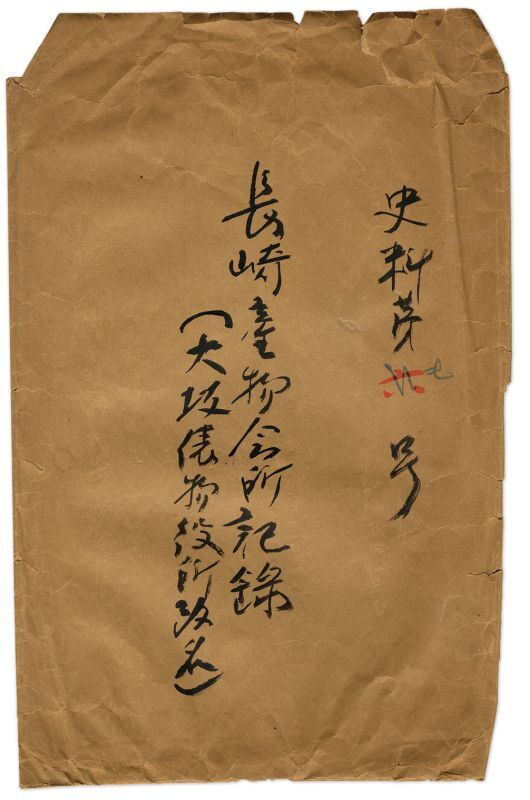 史料第六七号
長崎産物会所記録
(大坂俵物役所改名)